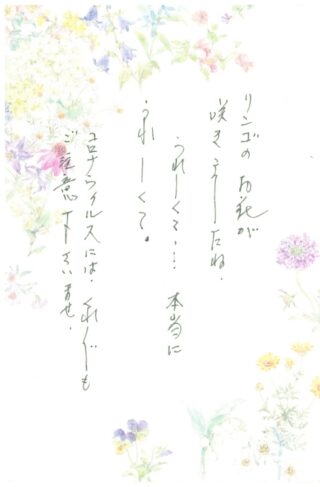 リンゴのお花が
咲きましたね.
うれしくて… 本当に
うれしくて.
コロナウィルスには.くれぐれも
ご注意下さいませ.